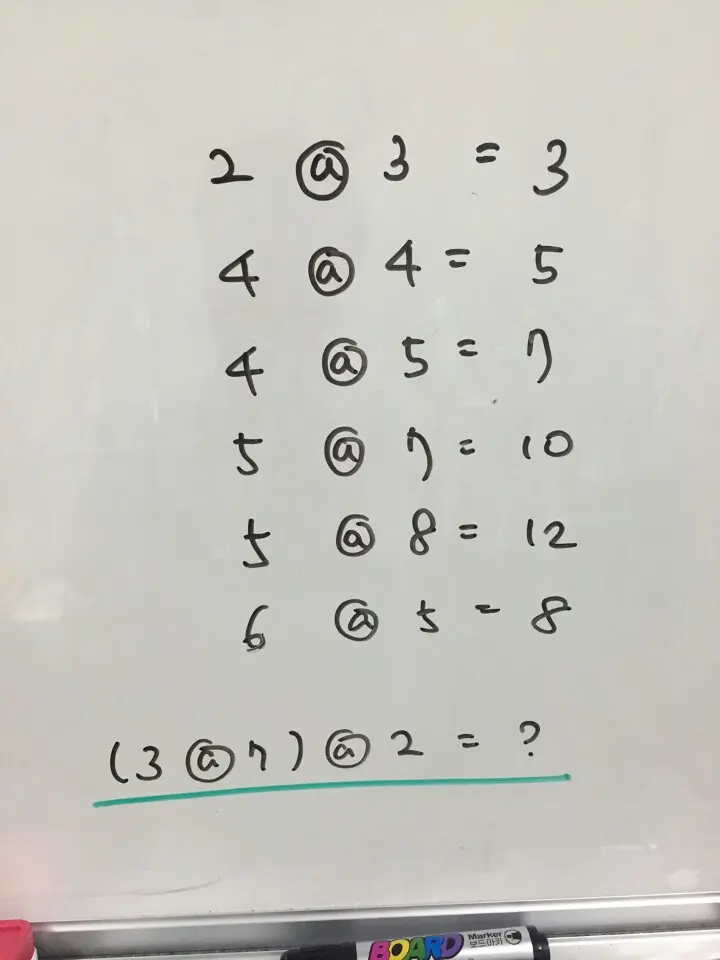 2 @ 3 = 3
4 @ 4 = 5
4 @ 5 = 7
5 @ 7 = 10
5 @ 8 = 12
6 @ 5 = 8
(3 @ 7) @ 2 = ?
BOARD Marker 보드마카